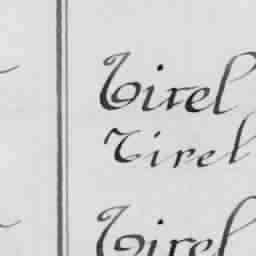 Tirel
Tirel
Tirel